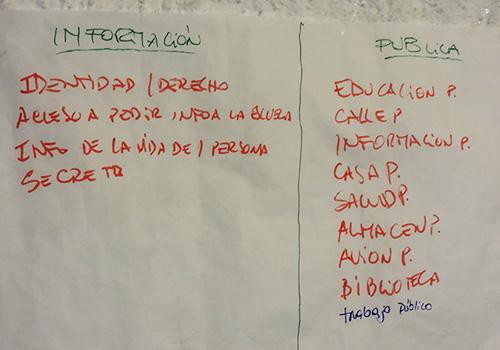 INFORMACIÓN
IDENTIDAD / DERECHO
ACCESO A PEDIR INFO A LA
INFO DE LA VIDA DE 1 PERSONA
SECRETO
PUBLICA
EDUCACION P.
CALLE P
INFORMACION P.
CASA P.
SALUD P.
ALMACEN P.
AVION P.
BIBLIOTECA
trabajo público